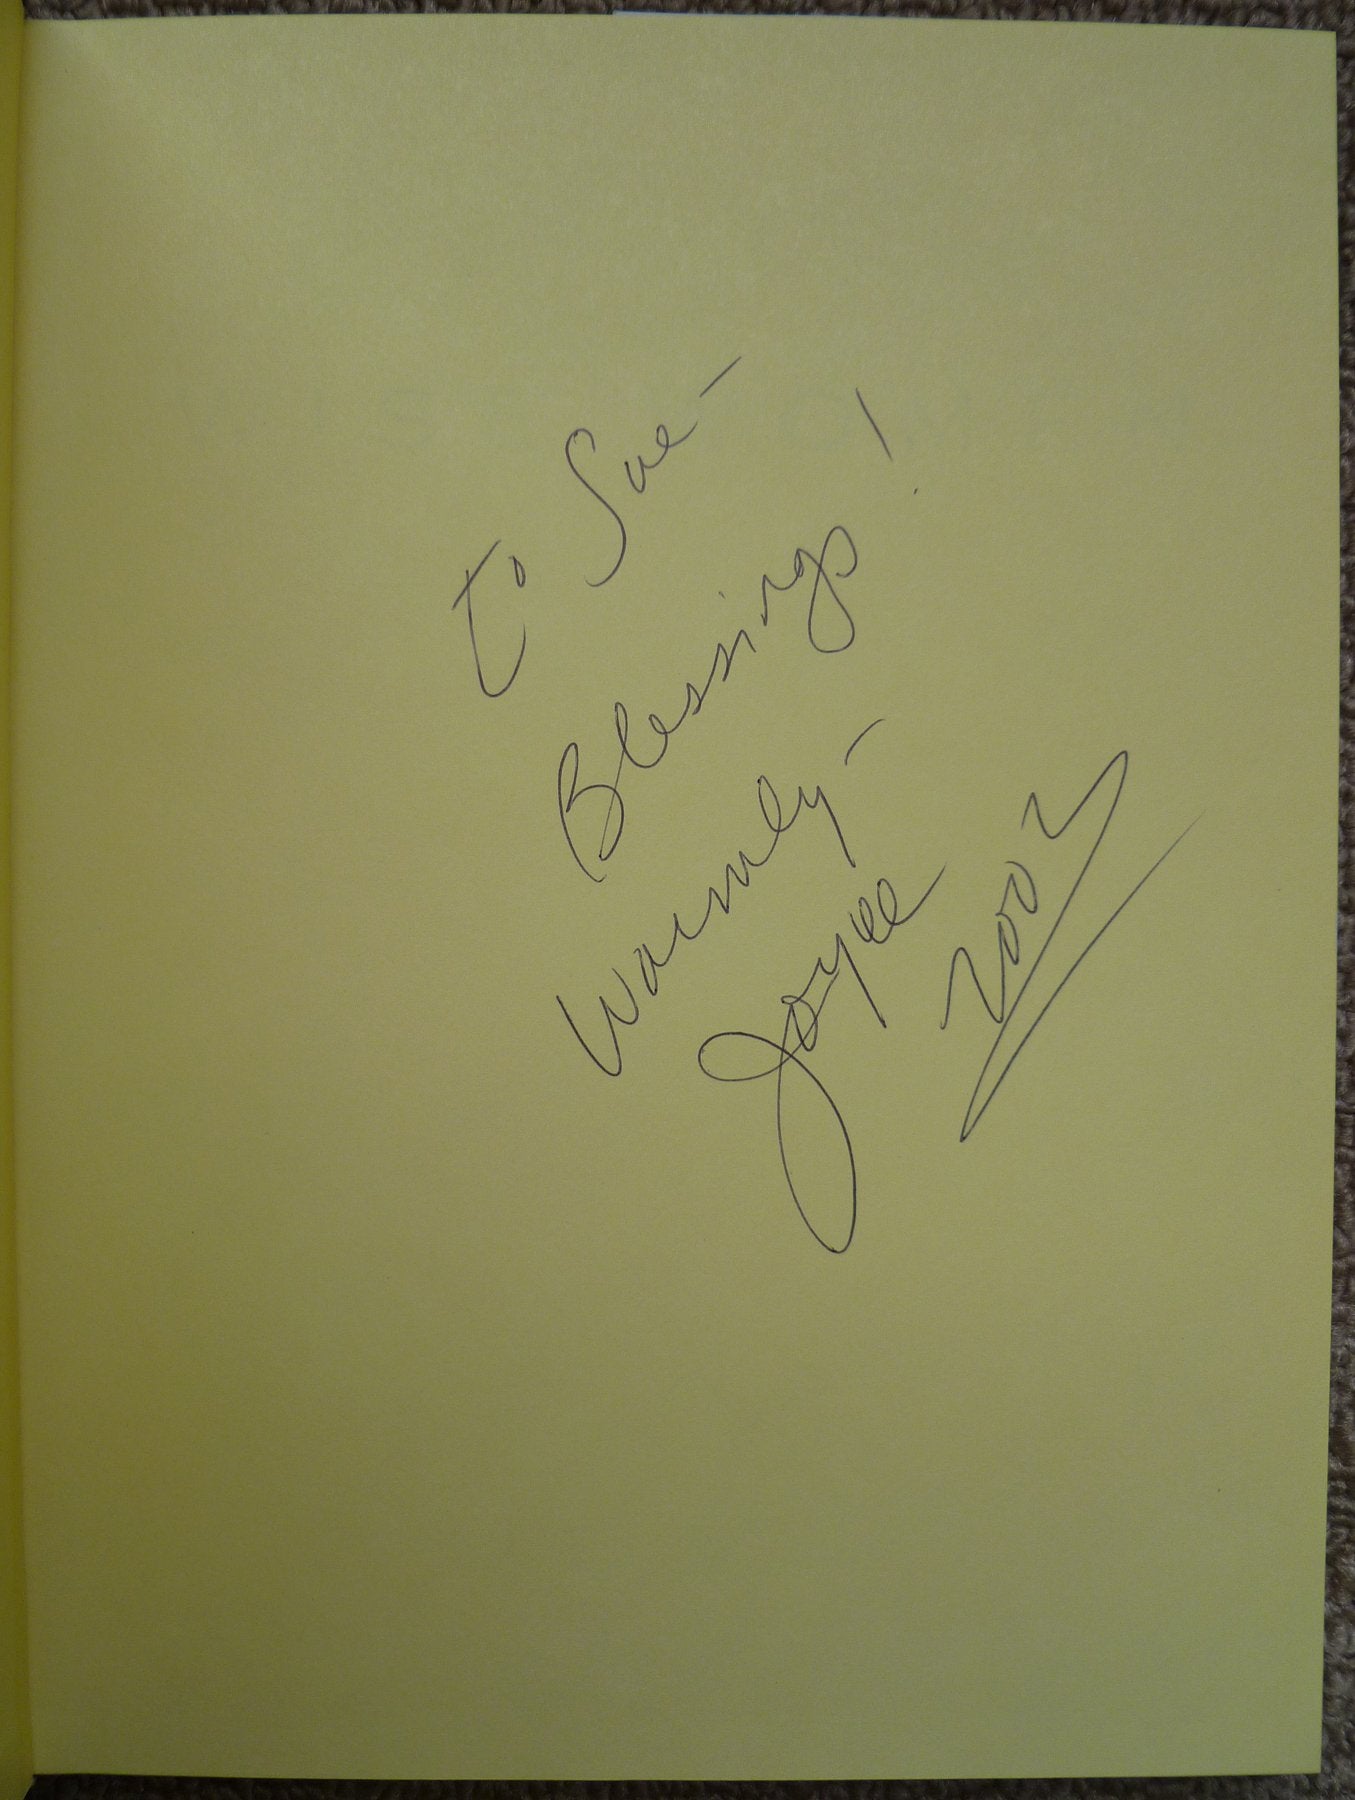 To Sue-
Blessings!
Warmly-
Joyce
2002